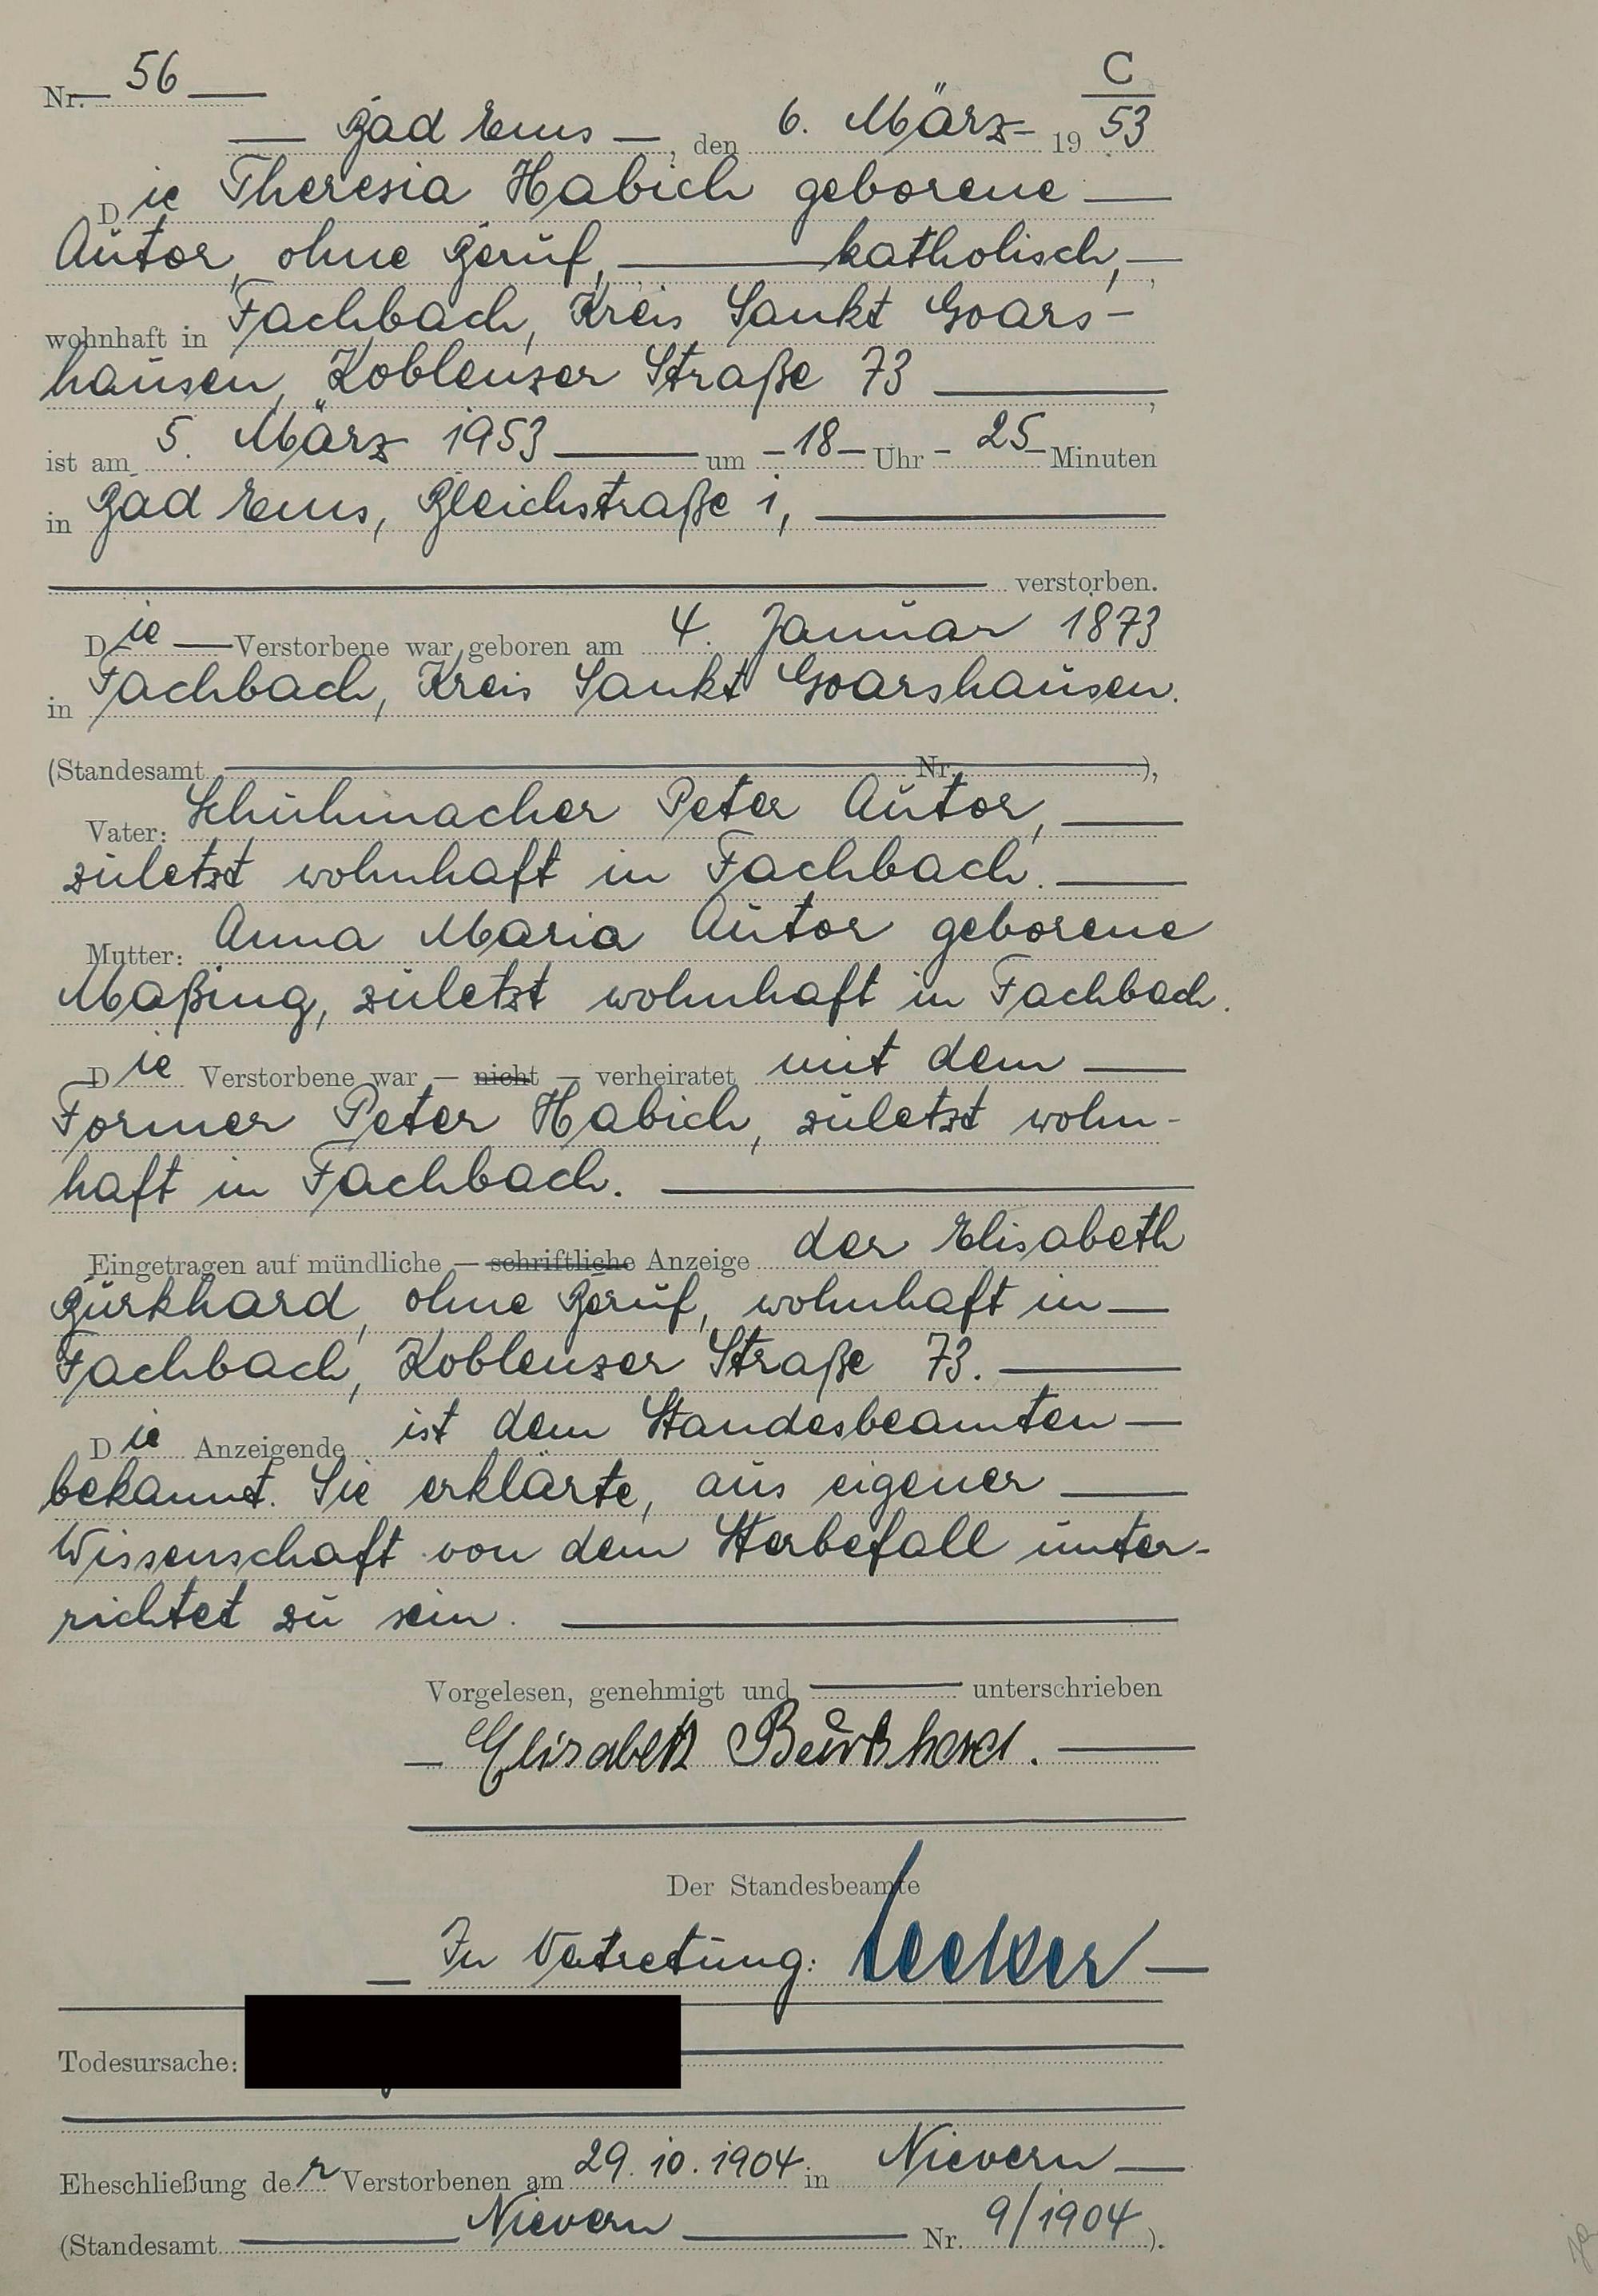 C
Nr. 56
Bad Ems, den 6. März 1953
Die Theresia Habich geborene
Autor, ohne Beruf, katholisch,
wohnhaft in Fachbach, Kreis Sankt Goars-
hausen, Koblenzer Straße 73,
ist am 5. März 1953 um 18 Uhr 25 Minuten
in Bad Ems, Bleichstraße 1,
verstorben.
Die Verstorbene war geboren am 4. Januar 1873
in Fachbach, Kreis Sankt Goarshausen.
(Standesamt Nr. ),
Vater: Schuhmacher Peter Autor,
zuletzt wohnhaft in Fachbach.
Mutter: Anna Maria Autor geborene
Maßing, zuletzt wohnhaft in Fachbach.
Die Verstorbene war — nicht — verheiratet mit dem
Former Peter Habich, zuletzt wohn-
haft in Fachbach.
Eingetragen auf mündliche — schriftliche Anzeige der Elisabeth
Burkhard, ohne Beruf, wohnhaft in
Fachbach, Koblenzer Straße 73.
Die Anzeigende ist dem Standesbeamten
bekannt. Sie erklärte, aus eigener
Wissenschaft von dem Sterbefall unter-
richtet zu sein.
Vorgelesen, genehmigt und unterschrieben
Elisabeth Burkhard.
Der Standesbeamte
In Vertretung:
Todesursache:
Eheschließung der Verstorbenen am 29.10.1904 in Nievern
(Standesamt Nievern Nr. 9/1904).